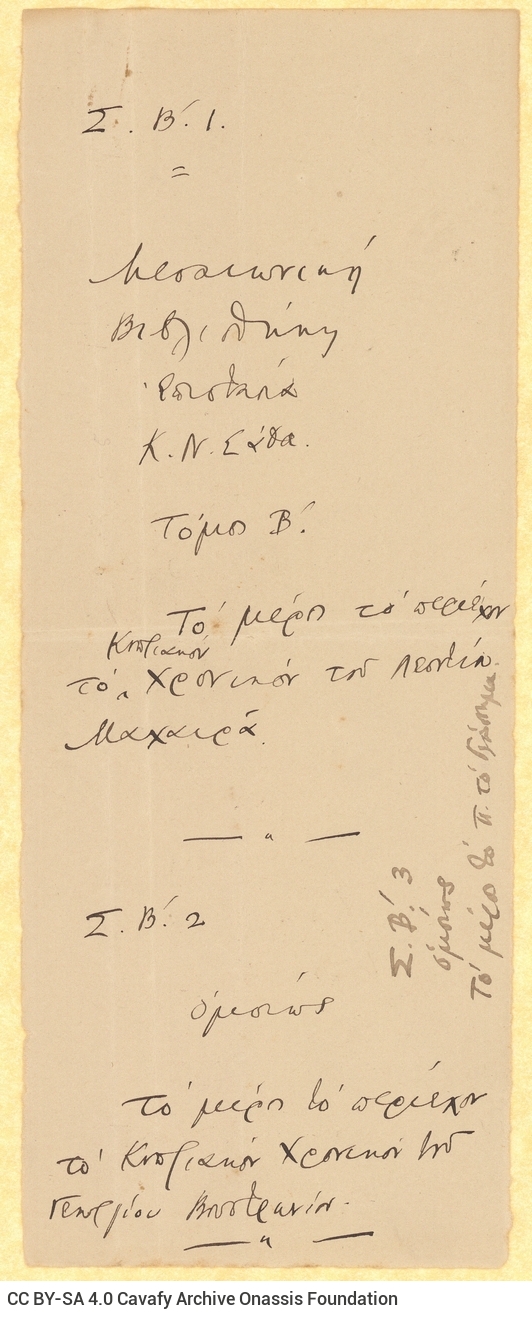 Σ. Β΄. 1.
=
Μεσαιωνική
Βιβλιοθήκη
Επιστασία
Κ. Ν. Σάθα.
Τόμος Β΄.
Το μέρος το περιέχον
Κυπριακόν
το ‸ Χρονικόν του Λεοντίου
Μαχαιρά.
— " —
Σ. Β΄. 2
ομοίως
το μέρος το περιέχον
το Κυπριακόν Χρονικόν του
Γεωργίου Βουστρωνίου.
— " —
Σ. Β΄. 3
ομοίως
Το μέρος το π. το
CC BY-SA 4.0 Cavafy Archive Onassis Foundation